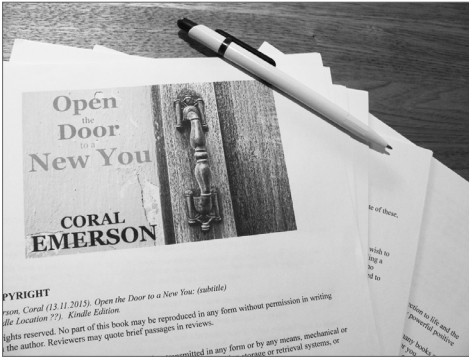 Open
the
Door
to a
New You
CORAL
EMERSON
PYRIGHT
rson, Coral (13.11.2015). Open the Door to a New You: (subtitle)
dle Location ??). Kindle Edition.
ights reserved. No part of this book may be reproduced in any form without permission in writing
the author. Reviewers may quote brief passages in reviews.
smitted in any form or by any means, mechanical or
storage or retrieval systems, or
te of these,
wish to
ing a
ed to
ction to life and the
powerful positive
any books